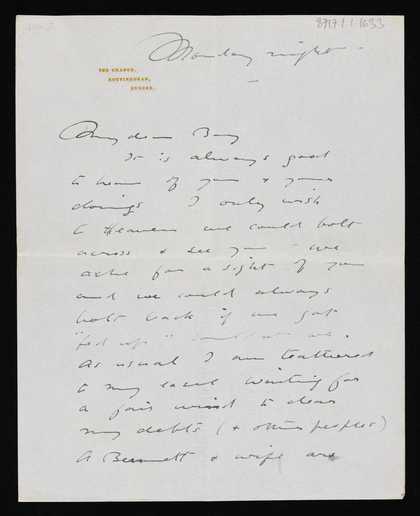 8717.1.1.1633
Monday night
THE GRANGE,
ROTTINGDEAN,
SUSSEX.
My dear
It is always good
to hear of you & your
doings I only wish
to Heaven we could bolt
across & see you - we
ache for a sight of you
and we could always
bolt back if we got
"fed up"
As usual I am teathered
to my easel waiting for
a fair wind to clear
my debts (& other peoples)
A Bennett & wife are